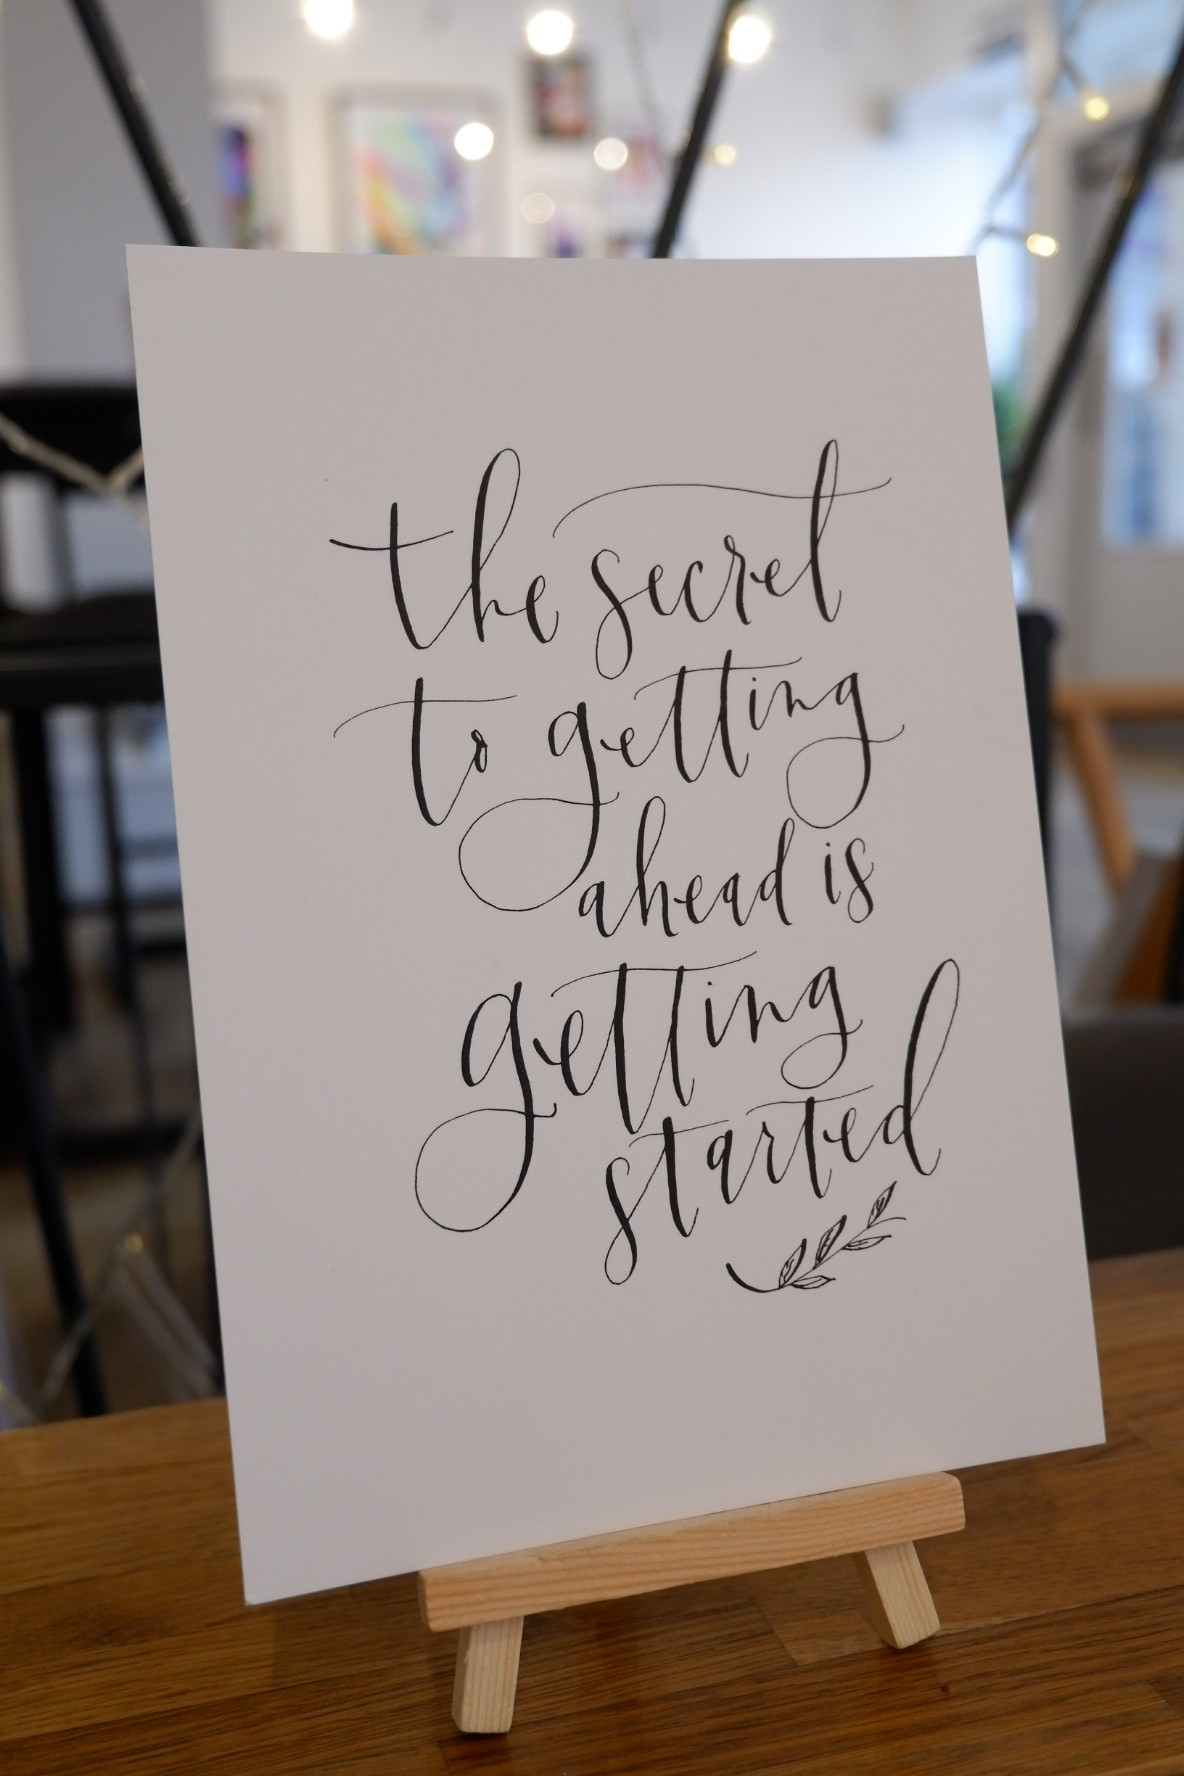 the secret
to getting
ahead is
getting
started